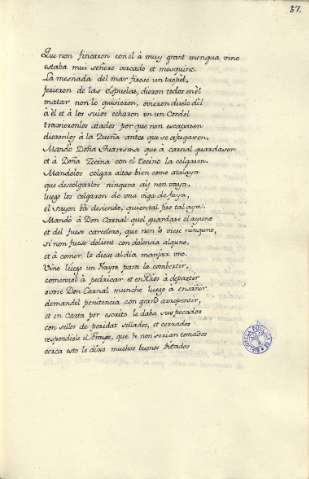 87.
Que non fincaron con el à muy grant mengua, vino
estaba muy señero cercado et mesquino.
La mesnada del mar fisose un tropel,
fincaron de las espuelas, dieron todos en el
matar non lo quisieron, ovieron duelo del
à èl et à los suios echaron en un Cordel
troxieronlos atados por que non escapasen
dieronlos à la Dueña antes que se afogasen,
Mandò Doña Quaresma que à carnal guardasen
et à Doña Cecina con el Tocino la colgasen.
Mandolos colgar altos bien como atalaya
que descolgarlos ninguno ay non vaya,
luego los colgaron de una viga de faya,
el sayon iba desiendo, quien tal fiso tal aya:
Mandò à Don Carnal quel guardase el ayuno
et el fuese carcelero, que non lo viese ninguno,
si non fuese doliente con dolencia alguno,
et à comer le diese al dia manjar uno.
Vino luego un Frayre para lo convertir,
comenzole à predicar et en Dios à departir
ovose Don Carnal mucho luego à
demandol penitencia con grand
et en Carta por escrito le daba sus pecados
con sellos de poridat sellados, et cerrados
respondiole el frayre, que non serien
cerca esto le dixo muchos buenos